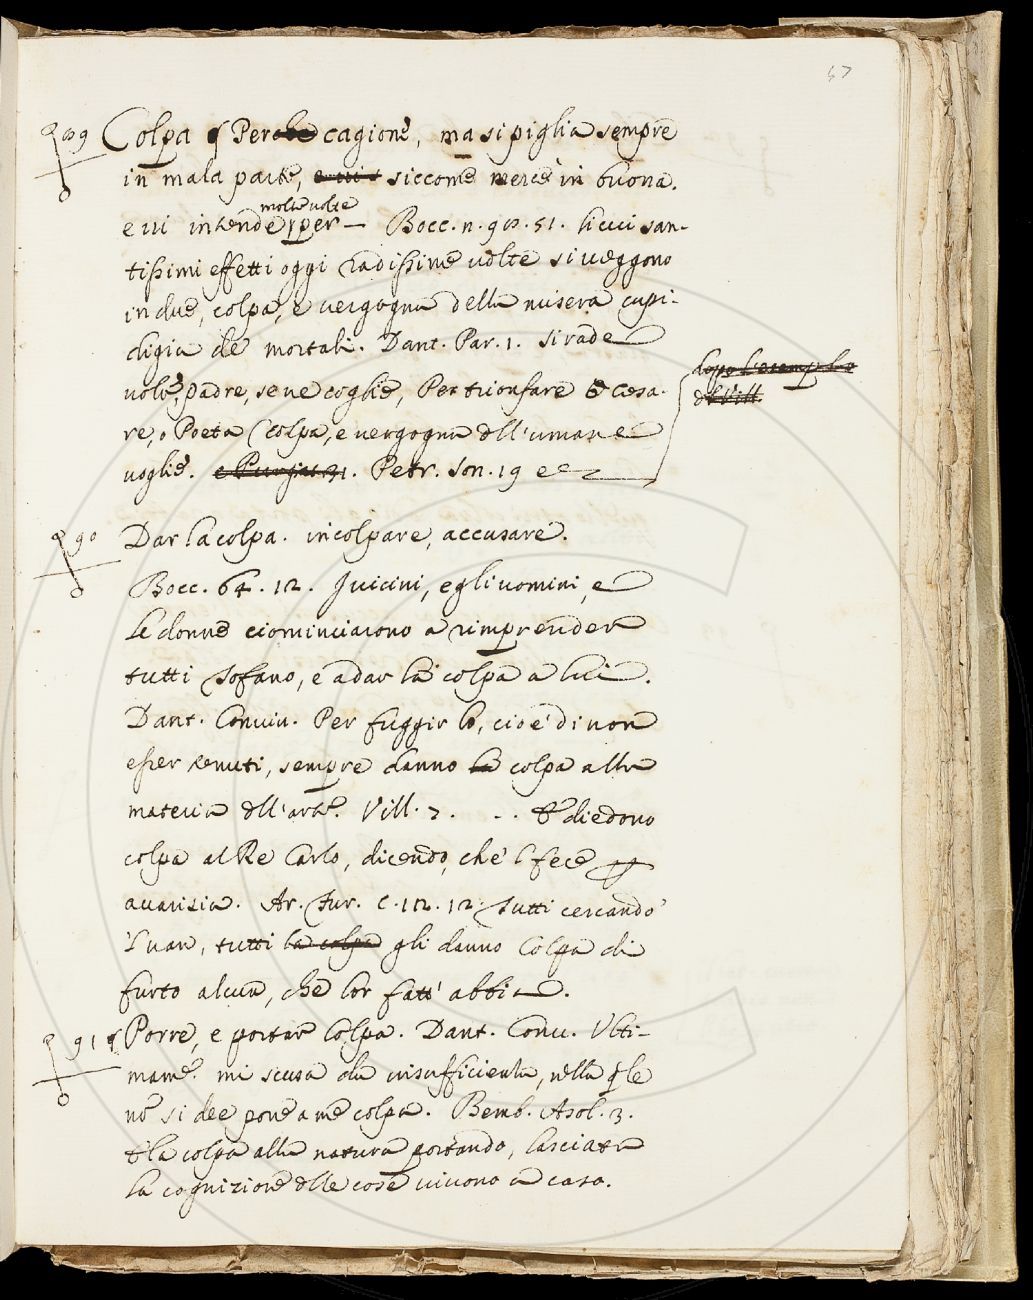 57
89 Colpa p Per cagione, ma si piglia sempre
in mala parte, siccome mercè in buona.
molte volte
e vi intende per — Bocc. n. 98. 51. li cui san-
tissimi effetti oggi radissime volte si veggono
in due, colpa, e vergogna della misera cupi-
digia de mortali. Dant. Par. 1. si rade
dopo l'esemplo
volte, padre, se ne coglie, Per trionfare o Cesa-
di Vill.
re, o Poeta Colpa, e vergogna dll'umane
voglie. e Purgat. 31. Petr. Son. 19 e
90 Dar la colpa. incolpare, accusare.
Bocc. 64. 12. I vicini, e gli uomini, e
le donne ciominciarono a riprender
tutti Tofano, e a dar la colpa a lui.
Dant. Conviv. Per fuggir lo, cioè di non
esser tenuti, sempre danno la colpa alla
materia dll'arte. Vill. 7. . . diedono
colpa al Re Carlo, dicendo, che l fece p
avarizia. Ar. Fur. C. 12. 12. Tutti cercando
'l van, tutti la colpa gli danno Colpa di
furto alcun, che lor fatt' abbia.
91 Porre, e portar Colpa. Dant. Conv. Ulti-
mame. mi scusa la insufficienta, nella qle
nō si dee pone a me colpa. Bemb. Asol. 3.
E la colpa alla natura portando, lasciata
la cognizione dlle cose vivono a caso.